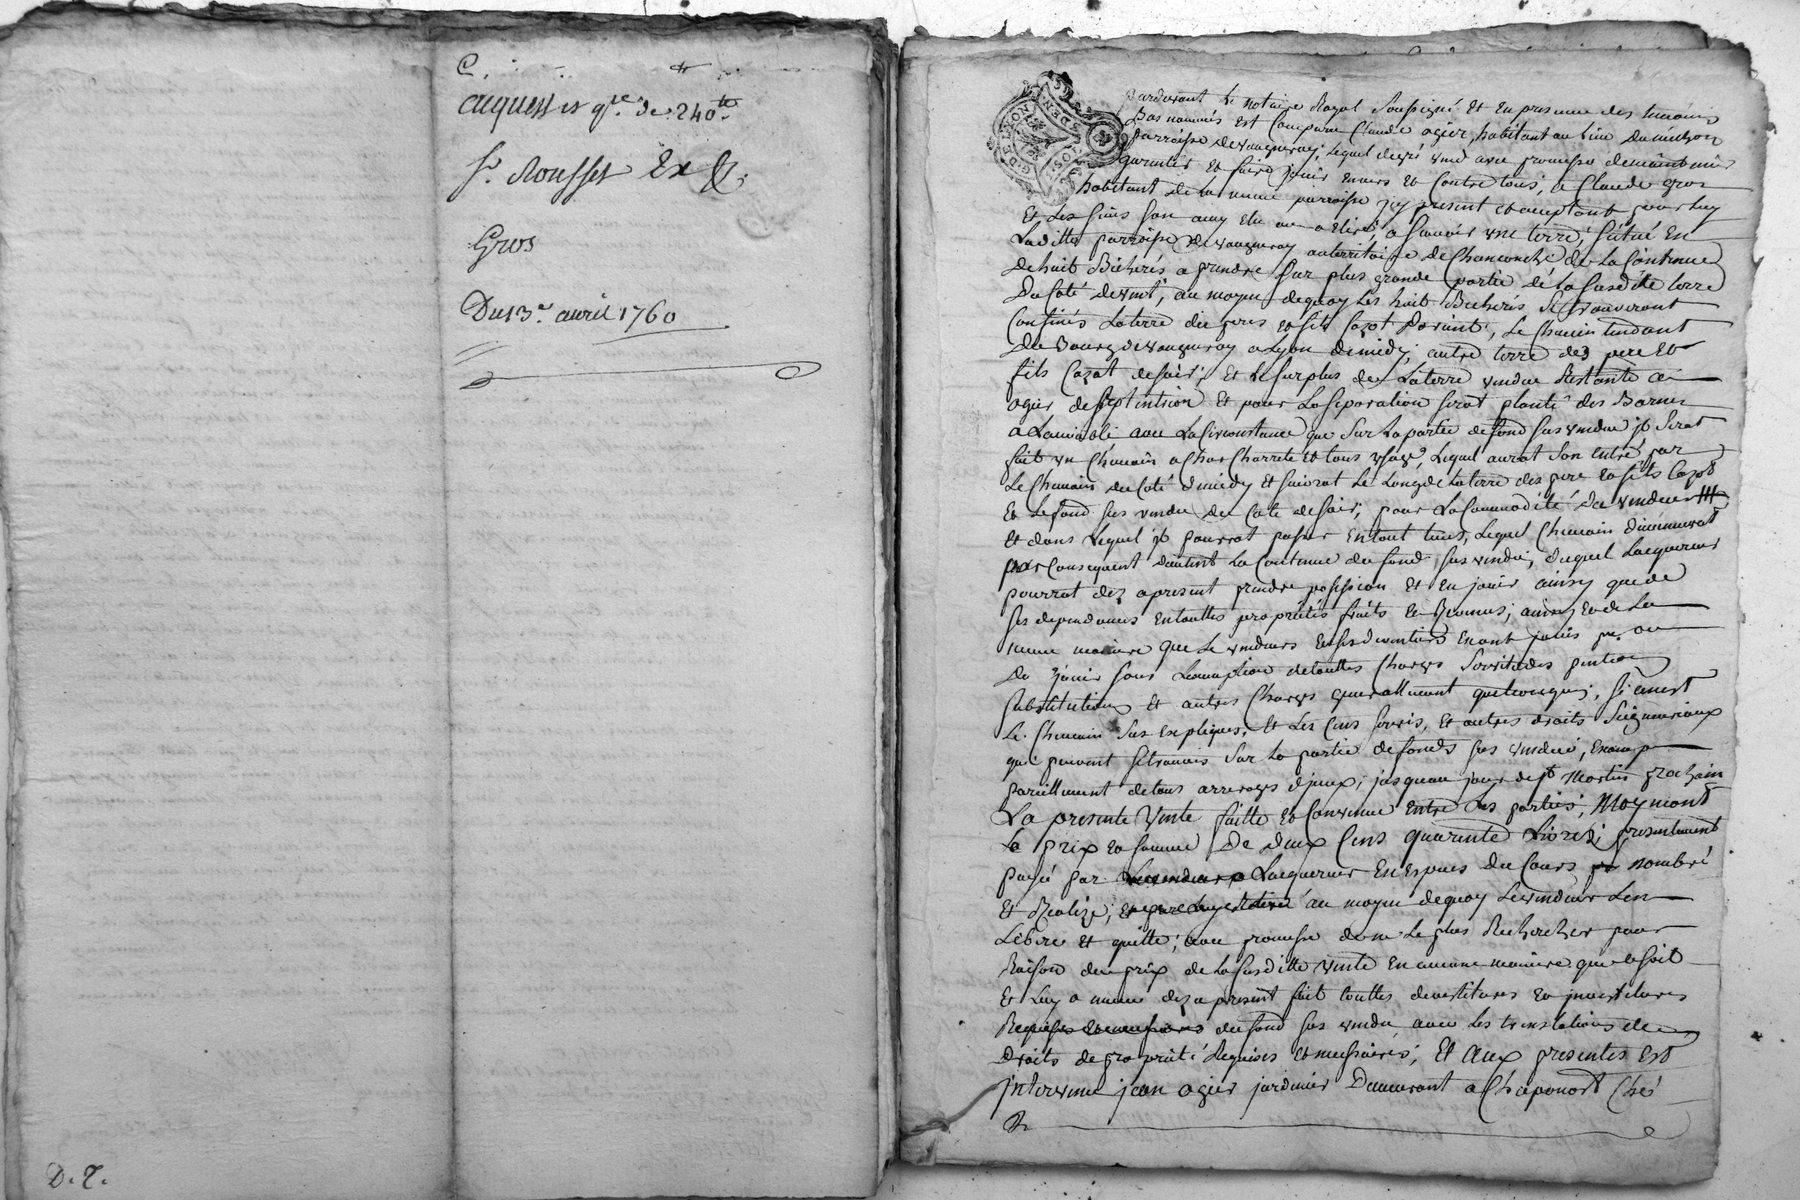 acquest et qce de 240tt
Sr. Rousset Ex
Gros
Du 13e. avril 1760
D. T.
Pardevant le notaire Royal soussigné et en presence des temoins
Bas nommés est Comparu Claude ogier, habitant au lieu
parroisse de vaugneray, lequel degré vend avec promesse de maintenir
garantir et faire jouir envers et Contre tous, a Claude gros
habitant de la meme parroisse jcy present et acceptant pour luy
Et les siens son amy elu ou a elire, a scavoir une terre, scitué En
Laditte parroisse de vaugneray auterritoire de de la Contenue
De huit Bicherés a prendre sur plus grande partie de la susditte terre
Du Coté de vent, au moyen dequoy les huit Bicherés se trouveront
Confinés La terre des pere et fils Cozot Devent, le Chemin tendant
Du Bourg de vaugneray a Lyon demidy, autre terre des pere Et
fils Cozot de soir, et le surplus de La terre vendue Restante au
ogier, de septentrion Et pour La separation serat planté des Bornes
a Lamiable avec La Circonstance que sur La partie de fond sus vendue jl serat
fait un Chemin a Char Charrete et tous usage, Lequel aurat son entré par
Le Chemin du Coté de midy et suivrat Le Long de La terre des pere et fils Cozot
Et Le fond sus vendu du Coté de soir, pour La Commodité du vendeur
Et dans Lequel jl pourrat passer En tout tems, Lequel Chemin diminuerat
par Consequent dautent La Contenue du fond sus vendu, duquel Lacquereur
pourrat dez apresent prendre possession Et En jouir ainsy que de
ses dependances En touttes proprietés fruits et Revenus, ainsy et de La
meme maniere que Le vendeurs Et ses devantiers En ont jouis pu ou
Du jouir sous Lexception de touttes Charges servitudes pention
substitution Et autres Charges generallement quelconques, si cenest
Le Chemin sus Expliqué, Et Les Cens servis, Et autres droits Seigneuriaux
que peuvent se trouvés sur La partie de fonds sus vendue, Exempt
pareillement de tous arrerages djceux, jusquau jour de st Martin prochain
La presente vente faitte et Convenue Entre Les parties, Moyennant
Le prix et somme De deux Cens quarente Livres, presentement
payé par Lacquereur En Especes du Cours nombré
Et Realizé, au moyen dequoy Le vendeur Len
Libere et quitte, avec promesse de ne Le plus Rechercher pour
Raison du prix de La susditte vente En aucune maniere que ce soit
Et Luy a meme dez a present fait touttes devestitures et jnvestitures
Requises et necessaires du fond sus vendu avec Les translations de
Droits de proprieté Requises et necessaires, Et aux presentes Est
jntervenue jean ogier jardinier Demeurant a Chaponost Ché